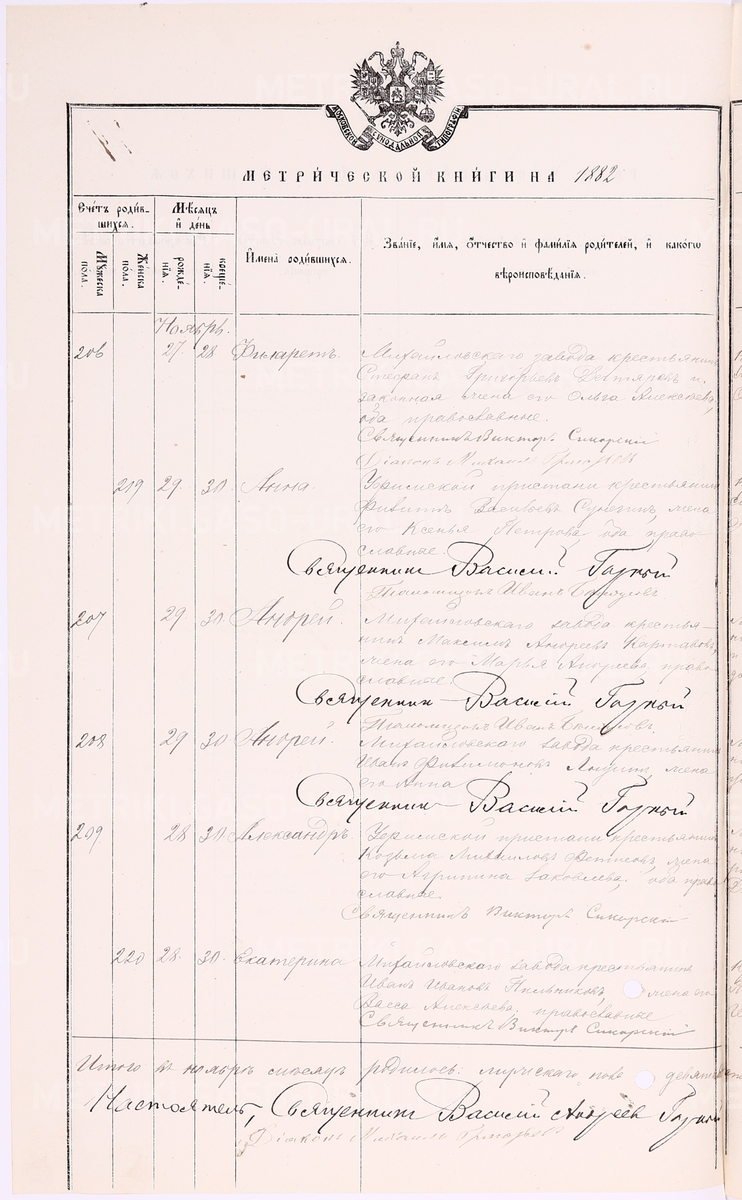 МОСКОВСКОЙ СѴНОДАЛЬНОЙ ТИПОГРАФІИ
МЕТРИ́ЧЕСКОЙ КНИ́ГИ НА 1882
Сче́тъ роди́в-
шихся.
Мѣсяцъ
и́ де́нь
И҆мена̀ роди́вшихся.
Зва́нїе, и҆́мя, ѻ҆́тчество и҆ фами́лїя роди́телей, и҆ како́гѡ
вѣроисповѣ́данїя.
Мꙋ́жеска по́ла.
Же́нска по́ла.
рожде́-нїѧ.
креще́-нїѧ.
Ноябрь.
206 27 28 Филаретъ. Михайловскаго завода крестьянинъ
Стефанъ Григорьевъ и
законная жена его Ольга Алексѣева,
оба православные.
Священникъ Викторъ Сикорскій
Діаконъ Михаилъ
219 29 30 Анна. Уфимской пристани крестьянинъ
Васильевъ жена
его Ксенья Петрова, оба право-
славные.
Священникъ Василій
Псаломщикъ Иванъ
207 29 30 Андрей. Михайловскаго завода крестья-
нинъ Максимъ Андреевъ жена его Марья Андреева, право-
славные.
Священникъ Василій
Псаломщикъ Иванъ
208 29 30 Андрей. Михайловскаго завода крестьянинъ
Иванъ Филимоновъ жена
его Анна
Священникъ Василій
209 28 30 Александръ. Уфимской пристани крестьянинъ
Козьма Михаиловъ жена
его Агрипина Яковлева, оба право-
славные.
Священникъ Викторъ Сикорскій
220 28 30 Екатерина Михайловскаго завода крестьянинъ
Иванъ Ивановъ Пильниковъ, жена его
Васса Алексѣева, православные
Священникъ Викторъ Сикорскій
Итого въ ноябрѣ мѣсяцѣ родилось: мужскаго пола девять
Настоятель, Священникъ Василій Андреев
Діаконъ Михаилъ